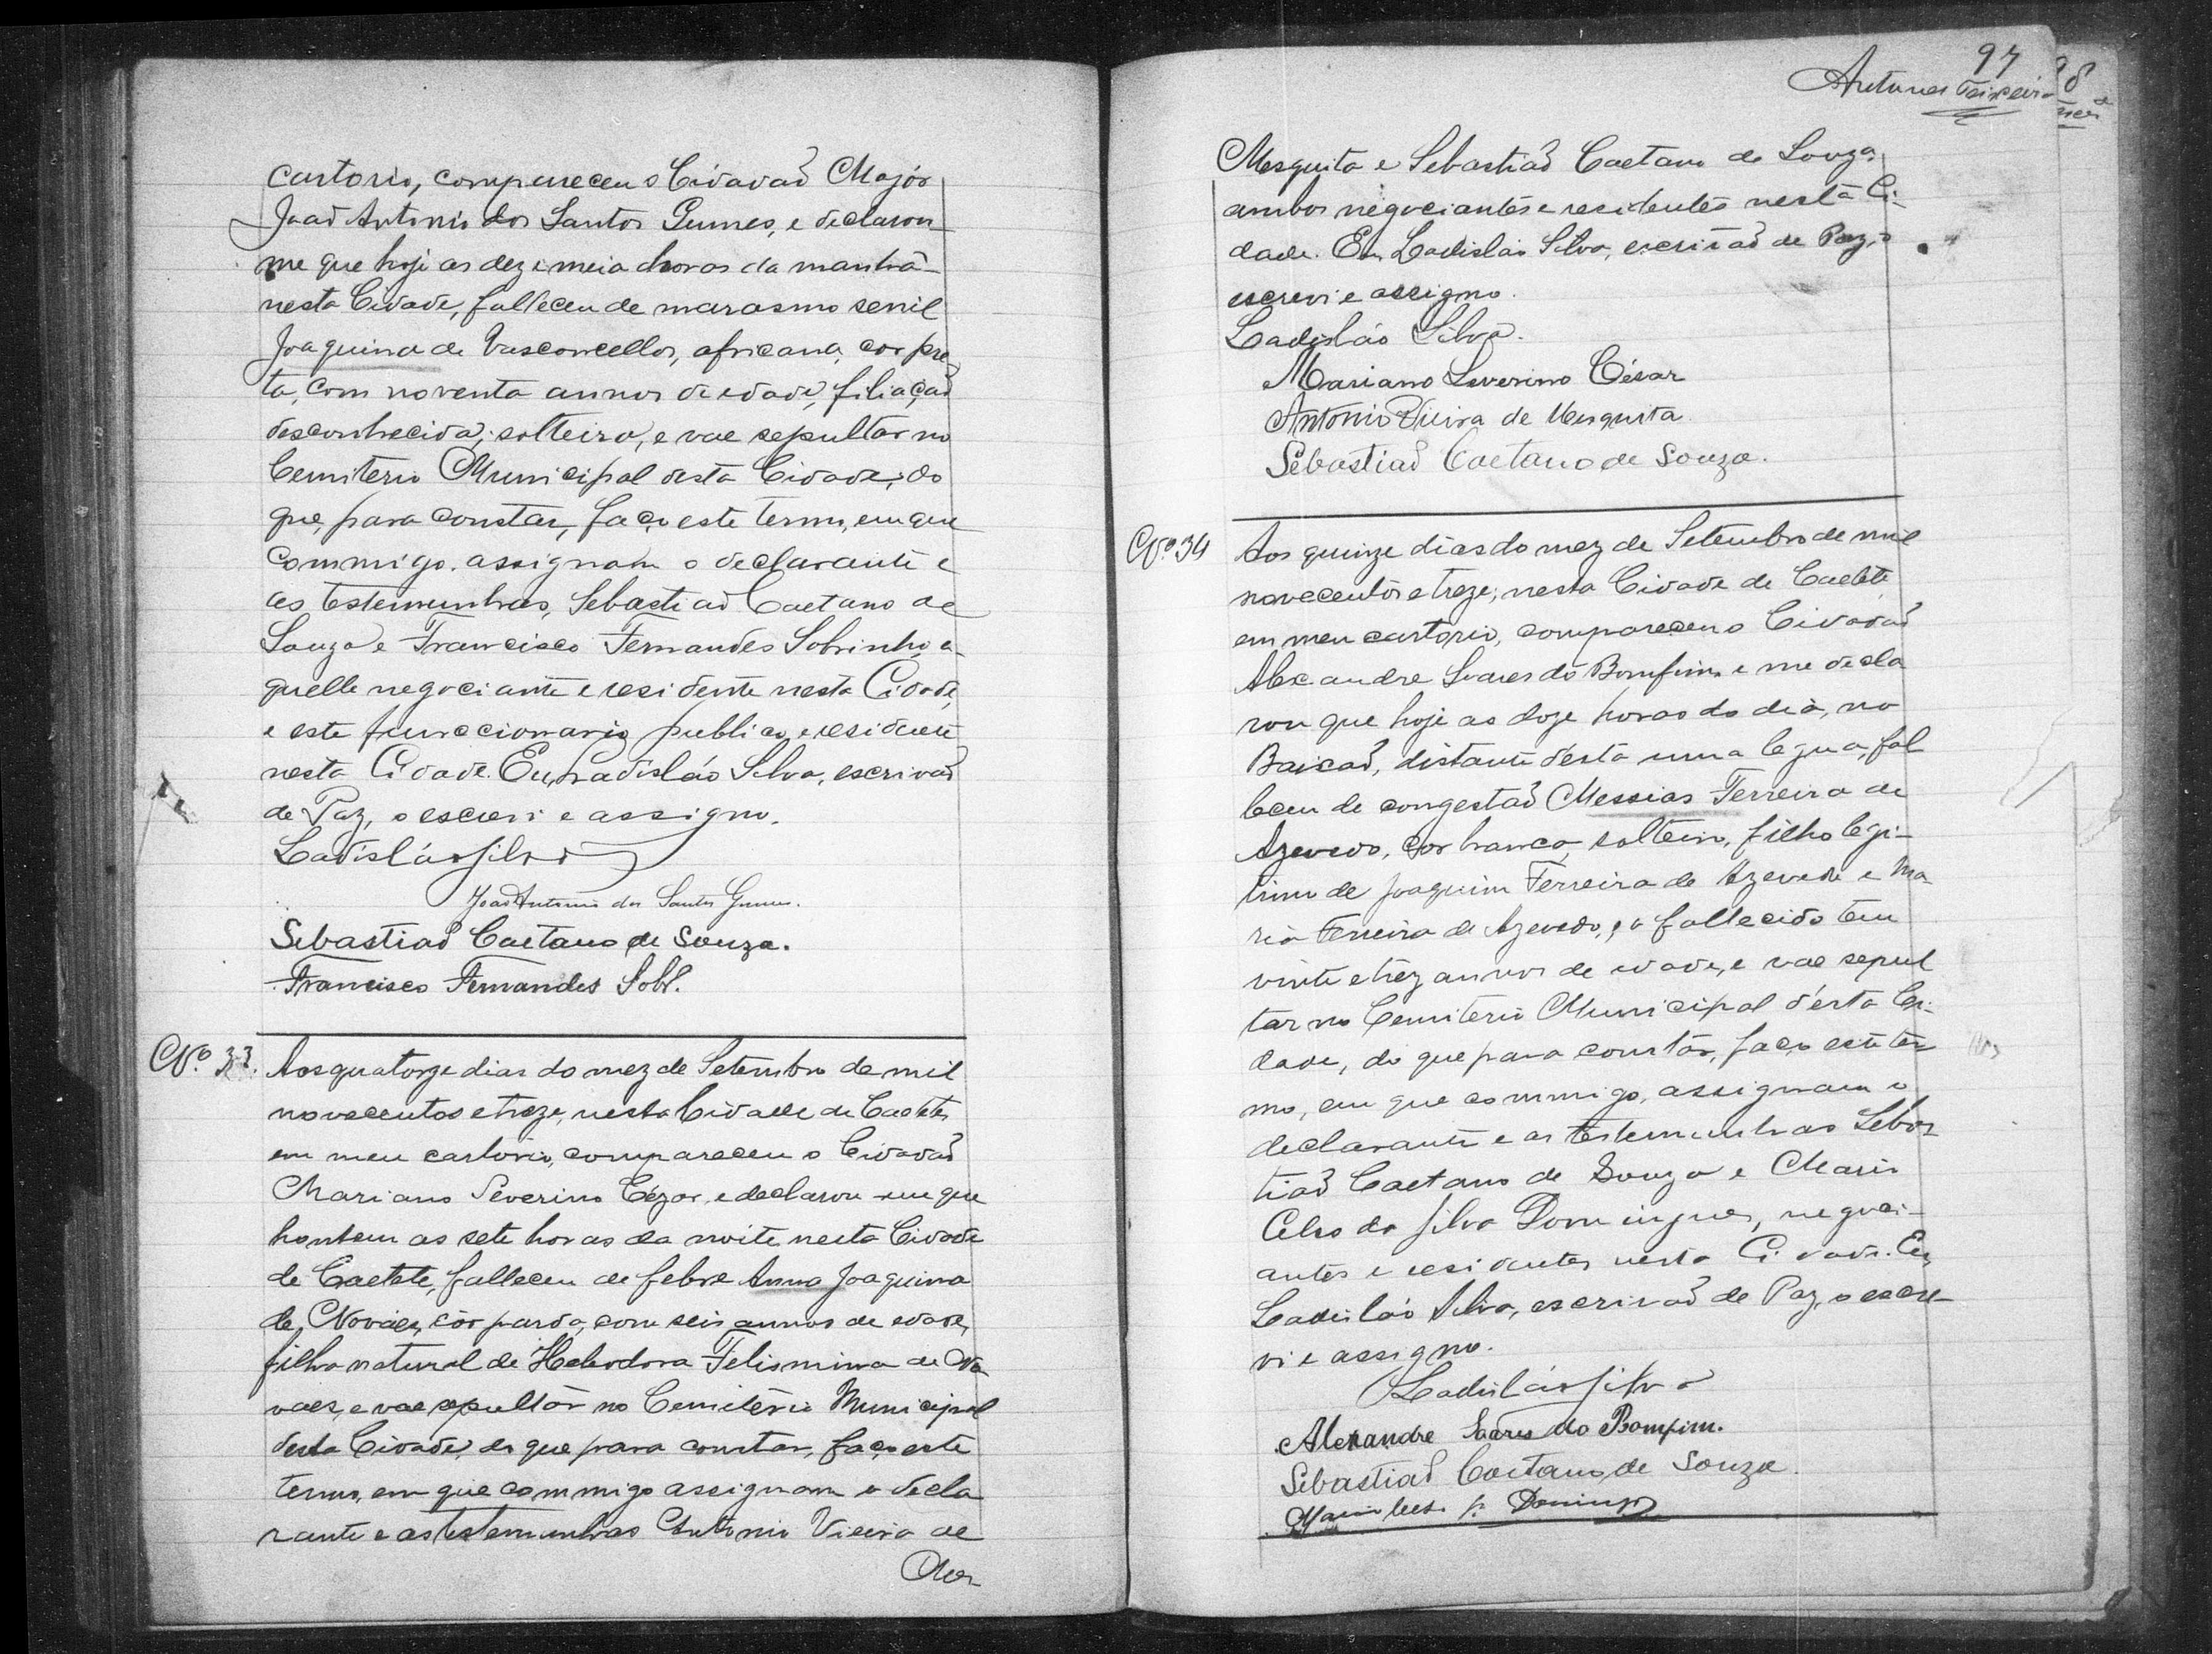 cartorio, compareceu o Cidadaõ Majór
Joaõ Antonio dos Santos Gumes, e declarou
me que hoje as dez e meia horas da manhã
nesta Cidade, falleceu de marasmo senil
Joaquina de Vasconcellos, africana, cor pre
ta, com noventa annos de edade, filiaçaõ
desconhecida; solteira, e vae sepultar no
Cemiterio Municipal desta Cidade; do
que, para constar, faço este termo, em que
commigo assignam o declarante e
as testemunhas, Sebastiaõ Caetano de
Souza e Francisco Fernandes Sobrinho, a-
quelle negociante e residente nesta Cidade,
e este funccionario publico, e residente
nesta Cidade. Eu, Ladisláo Silva, escrivaõ
de Paz, o escrevi e assigno.
Ladisláo Silva
João Antonio dos Santos Gumes.
Sebastiaõ Caetano de Souza.
Francisco Fernandes Sobr.
Nº 33. Aos quatorze dias do mez de Setembro de mil
novecentos e treze, nesta Cidade de Caeteté,
em meu cartorio, compareceu o Cidadaõ
Mariano Severino Cézar, e declarou-me que
hontem as sete horas da noite nesta Cidade
de Caeteté, falleceu de febre Anna Joaquina
de Novaes, côr parda, com seis annos de edade,
filha natural de Heliodora Felismina de No
vaes, e vae sepultar no Cemiterio Municipal
desta Cidade, do que para constar, faço este
termo, em que commigo assignam o decla
rante e as testemunhas Antonio Vieira de
Mes
97
Antunes Teixeira
Mesquita e Sebastiaõ Caetano de Souza,
ambos negociantes e residentes nesta Ci-
dade. Eu Ladisláo Silva, escrivaõ de Paz, o
escrevi e assigno.
Ladisláo Silva.
Mariano Severino César
Antonio Vieira de Mesquita
Sebastiaõ Caetano de Souza.
Nº 34 Aos quinze dias do mez de Setembro de mil
novecentos e treze, nesta Cidade de Caeteté
em meu cartorio, compareceu o Cidadaõ
Alexandre Soares do Bomfim e me decla
rou que hoje as doze horas do dia, no
Baixaõ, distante d'esta uma legua, fal
leceu de congestaõ Messias Ferreira de
Azevedo, cor branca, solteiro, filho legi-
timo de Joaquim Ferreira de Azevedo e Ma
ria Ferreira de Azevedo, e o fallecido tem
vinte e trez annos de edade, e vae sepul
tar no Cemiterio Municipal d'esta Ci-
dade, do que para constar, faço este ter
mo, em que commigo, assignam o
declarante e as testemunhas Sebas
tiaõ Caetano de Souza e Mario
Celso da Silva Domingues, negoci-
antes e residentes nesta Cidade. Eu,
Ladisláo Silva, escrivaõ de Paz, o escre-
vi e assigno.
Ladisláo Silva
Alexandre Soares do Bomfim.
Sebastiaõ Caetano de Souza.